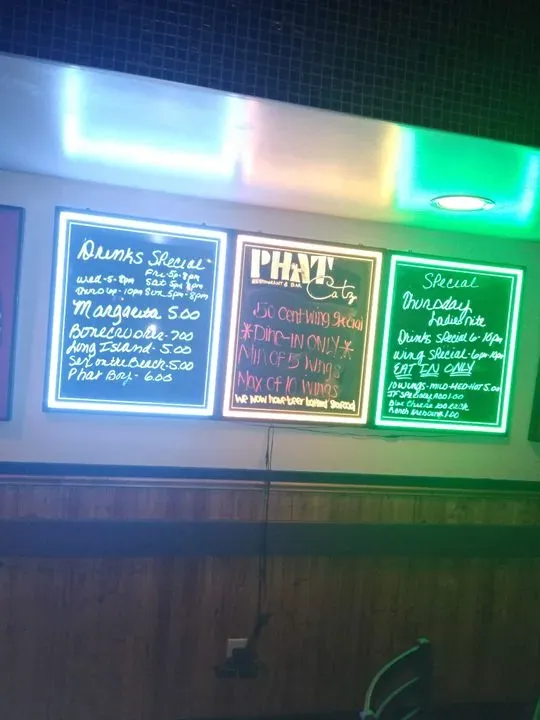 Drinks Special
Fri 5p-8pm
Wed-5-8pm Sat 5pm 8pm
10pm Sun 5pm-8pm
Margarita 5.00
7.00
Long Island-5.00
Sex on the Beach-5.00
Phat Boy-6.00
PHAT
RESTAURANT & BAR
Catz
.50 Cent Wing Special
*Dine-IN ONLY*
Min of 5 Wings
Max of 10 Wings
We Now have beer battered Seafood
Special
Thursday
Ladies nite
Drinks Special 6-10pm
Wing Special-6pm-10pm
EAT IN ONLY
10 WINGS-MILD-MED-HOT 5.00
IF Specialty ADD 1.00
Blue Cheese
Ranch 1.00